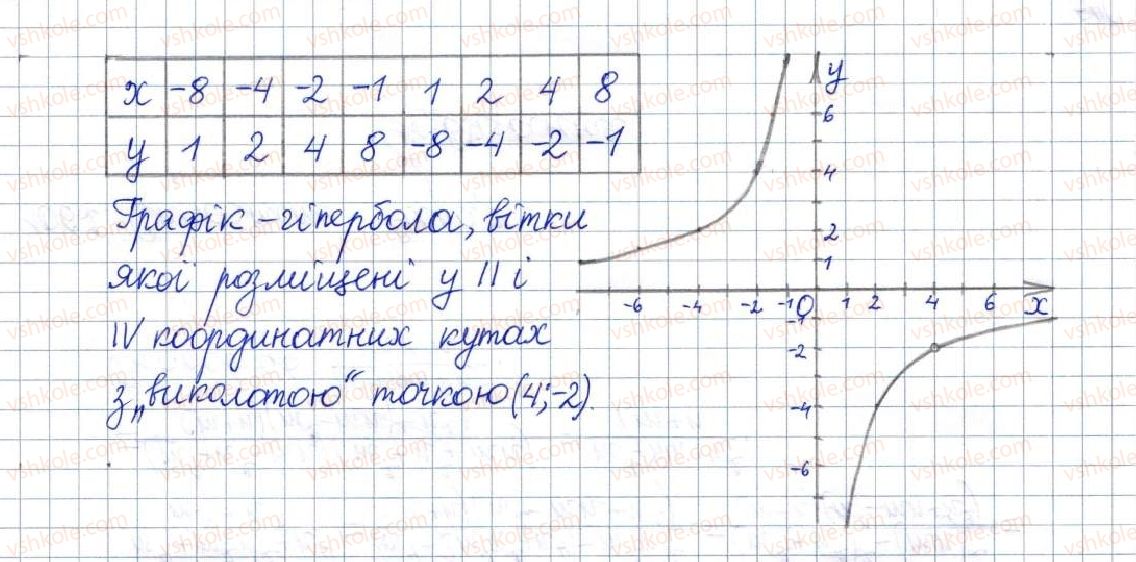 x -8 -4 -2 -1 1 2 4 8
y 1 2 4 8 -8 -4 -2 -1
Графік - гіпербола, вітки
якої розміщені у II і
IV координатних кутах
з „виколотою" точкою (4; -2).
y
6
4
2
1
-6 -4 -2 -1 0 1 2 4 6 x
-1
-2
-4
-6
vshkole.com